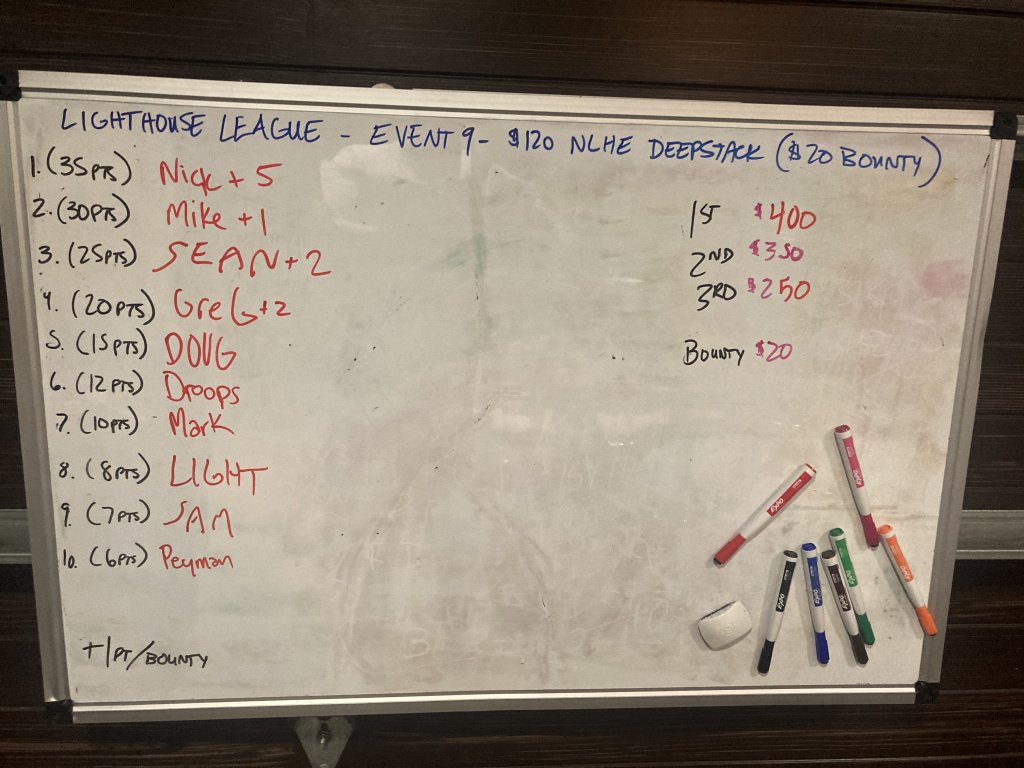 LIGHTHOUSE LEAGUE - EVENT 9 - $120 NLHE DEEPSTACK ($20 BOUNTY)
1. (35PTS) Nick + 5
2. (30PTS) Mike + 1
3. (25PTS) SEAN + 2
4. (20PTS) GreG + 2
5. (15PTS) DOUG
6. (12PTS) Droops
7. (10PTS) Mark
8. (8PTS) LIGHT
9. (7PTS) SAM
10. (6PTS) Peyman
+1PT/BOUNTY
1ST $400
2ND $350
3RD $250
BOUNTY $20
EXPO
EXPO
EXPO
EXPO
EXPO
EXPO
EXPO